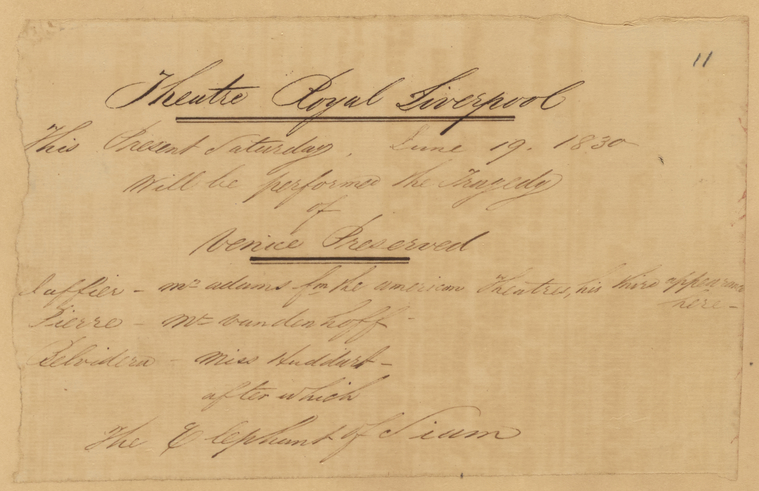 11
Theatre Royal Liverpool
This Present Saturday. June 19. 1830
Will be performed the Tragedy
of
Venice Preserved
Jaffier - Mr adams fm the american Theatres, his third appearance
here -
Pierre - Mr Vandenhoff -
Belvidera - Miss Huddart -
after which
The Elephant of Siam